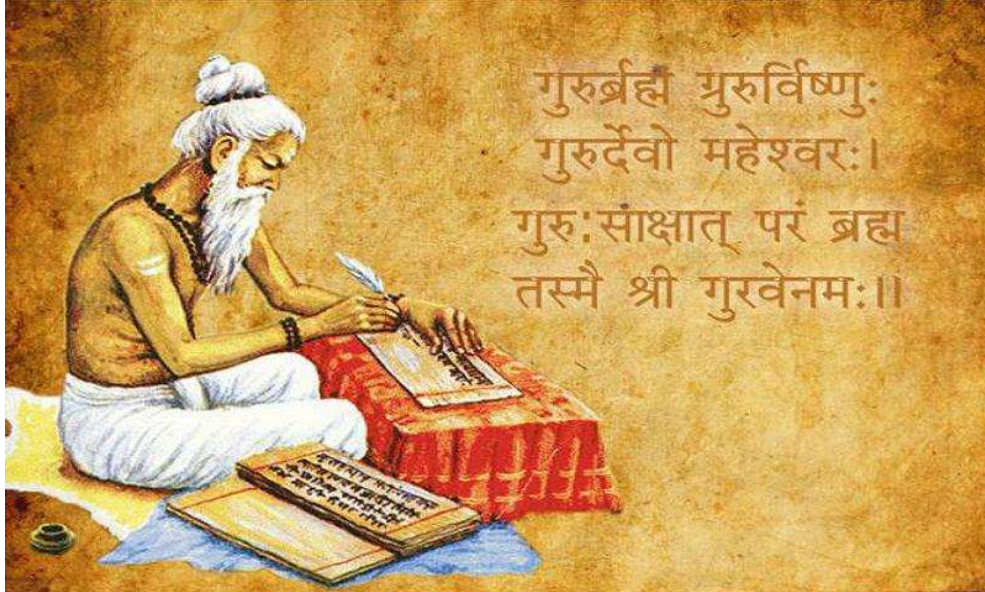 गुरुर्ब्रह्म ग्रुरुर्विष्णुः
गुरुर्देवो महेश्वरः।
गुरुःसाक्षात् परं ब्रह्म
तस्मै श्री गुरवेनमः।।